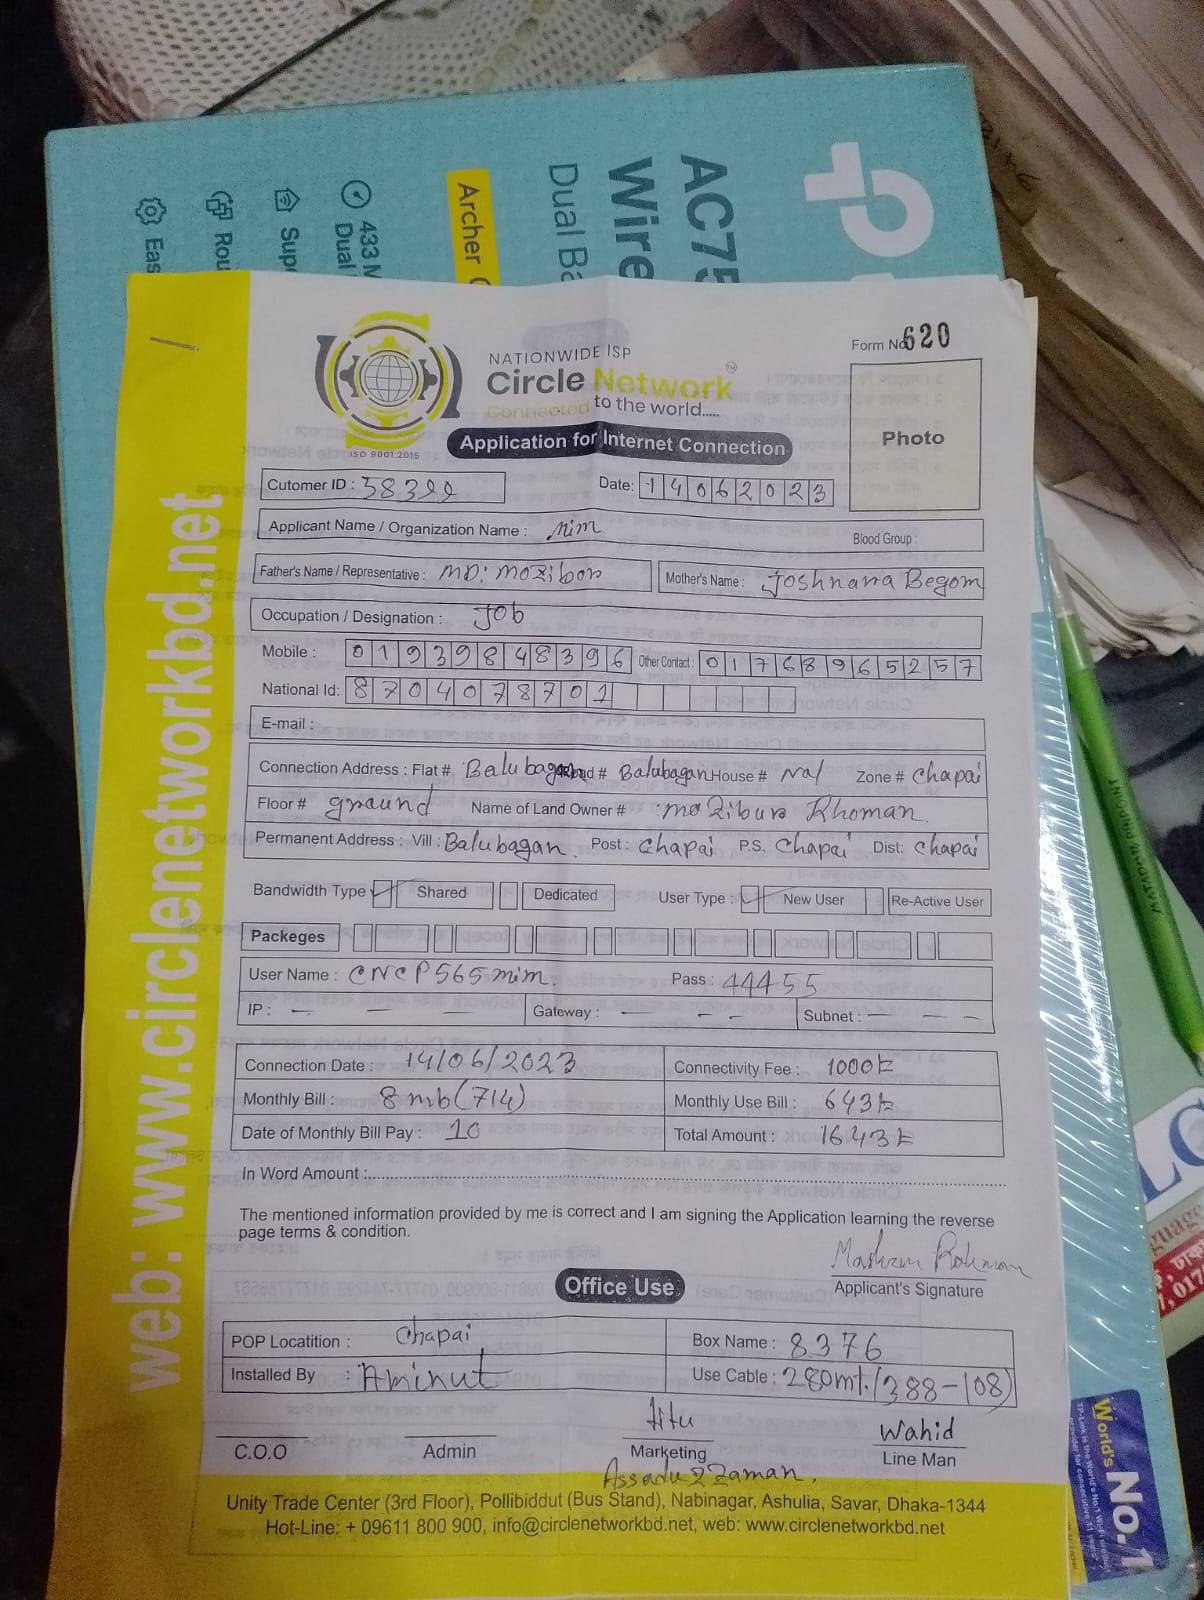 AC75
Wire
Dual Ba
Archer C
433 M
Dual
Supe
Rou
Eas
web: www.circlenetworkbd.net
NATIONWIDE ISP
Circle Network TM
Connected to the world.....
ISO 9001:2015
Form No 620
Photo
Application for Internet Connection
Cutomer ID :
Date: 14062023
Applicant Name / Organization Name : Mim
Blood Group :
Father's Name / Representative : MD: Mozibor Mother's Name : Joshnara Begom
Occupation / Designation : Job
Mobile : 01939848396 Other Contact : 01768965257
National Id: 8704078701
E-mail :
Connection Address : Flat # Balubagan Road # Balubagan House # Zone # Chapai
Floor # ground Name of Land Owner # Mozibur Rhoman
Permanent Address : Vill : Balubagan. Post : Chapai P.S. Chapai Dist: Chapai
Bandwidth Type ✓ Shared Dedicated User Type : ✓ New User Re-Active User
Packeges
User Name : CNCP565mim. Pass : 44455
IP : — — — Gateway : — — — Subnet : — — —
Connection Date : 14/06/2023 Connectivity Fee : 1000tk
Monthly Bill : 8 mb(714) Monthly Use Bill : 643tk
Date of Monthly Bill Pay : 10 Total Amount : 1643tk
In Word Amount :
The mentioned information provided by me is correct and I am signing the Application learning the reverse
page terms & condition.
Applicant's Signature
Office Use
POP Locatition : Chapai Box Name : 8376
Installed By : Aminut Use Cable : 280mt. (388-108)
Jitu Wahid
C.O.O Admin Marketing Line Man
Assaduzzaman.
Unity Trade Center (3rd Floor), Pollibiddut (Bus Stand), Nabinagar, Ashulia, Savar, Dhaka-1344
Hot-Line: + 09611 800 900, info@circlenetworkbd.net, web: www.circlenetworkbd.net
World's
No.1
MATADOR PINPOINT